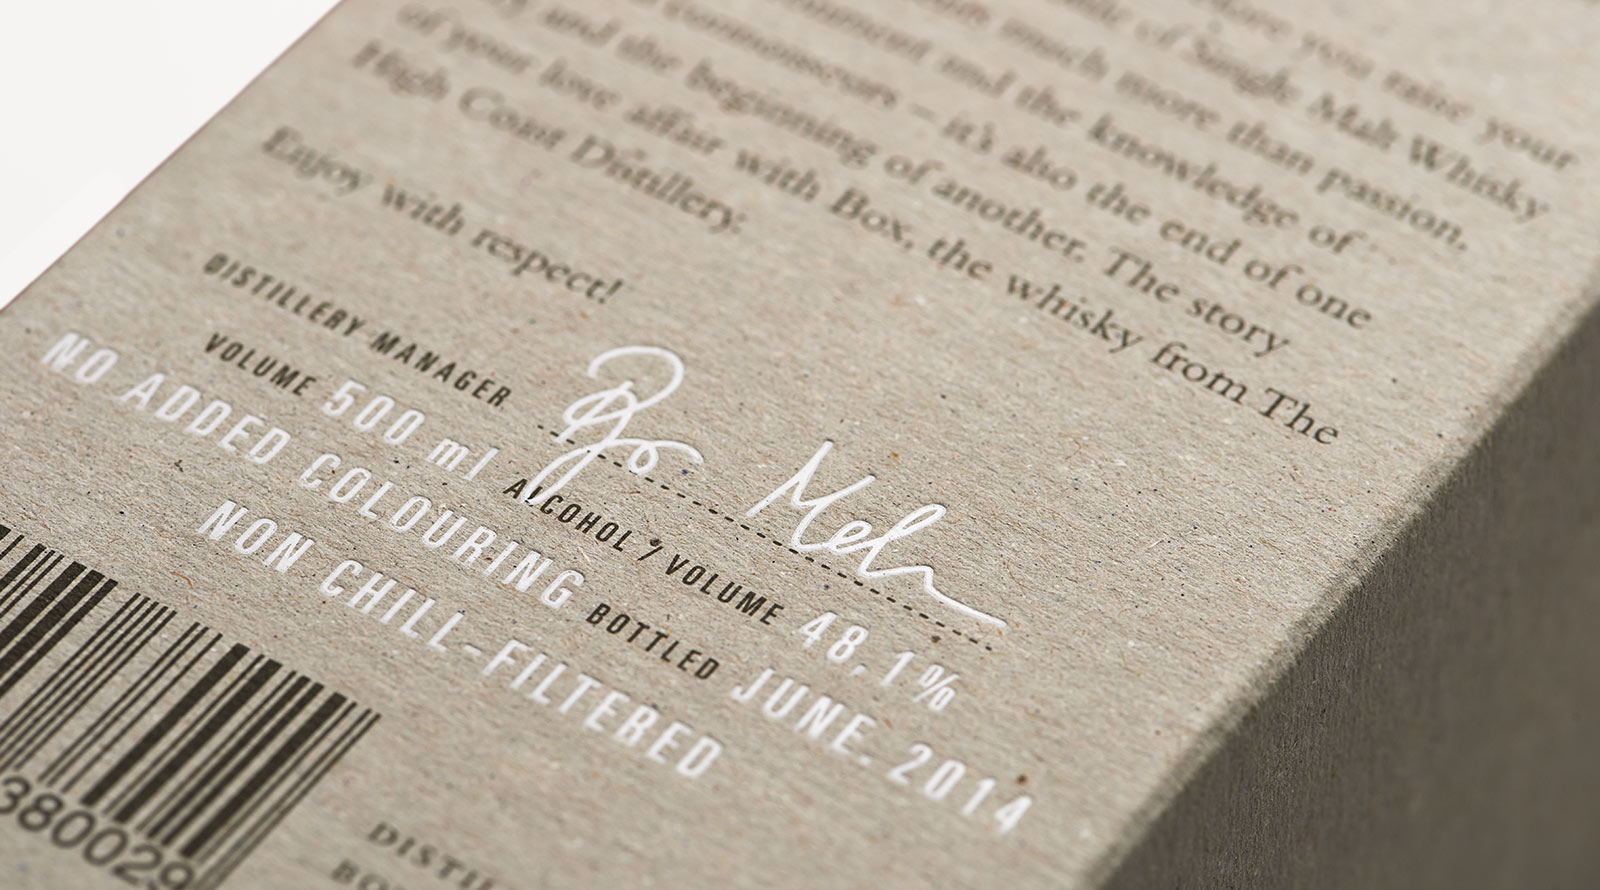 you raise your
of Single Malt Whisky
much more than passion,
and the knowledge of
connoisseurs – it's also the end of one
and the beginning of another. The story
of your love affair with Box, the whisky from The
High Coast Distillery.
Enjoy with respect!
DISTILLERY MANAGER
VOLUME 500 ml ALCOHOL / VOLUME 48,1%
NO ADDED COLOURING BOTTLED JUNE. 2014
NON CHILL-FILTERED
380029